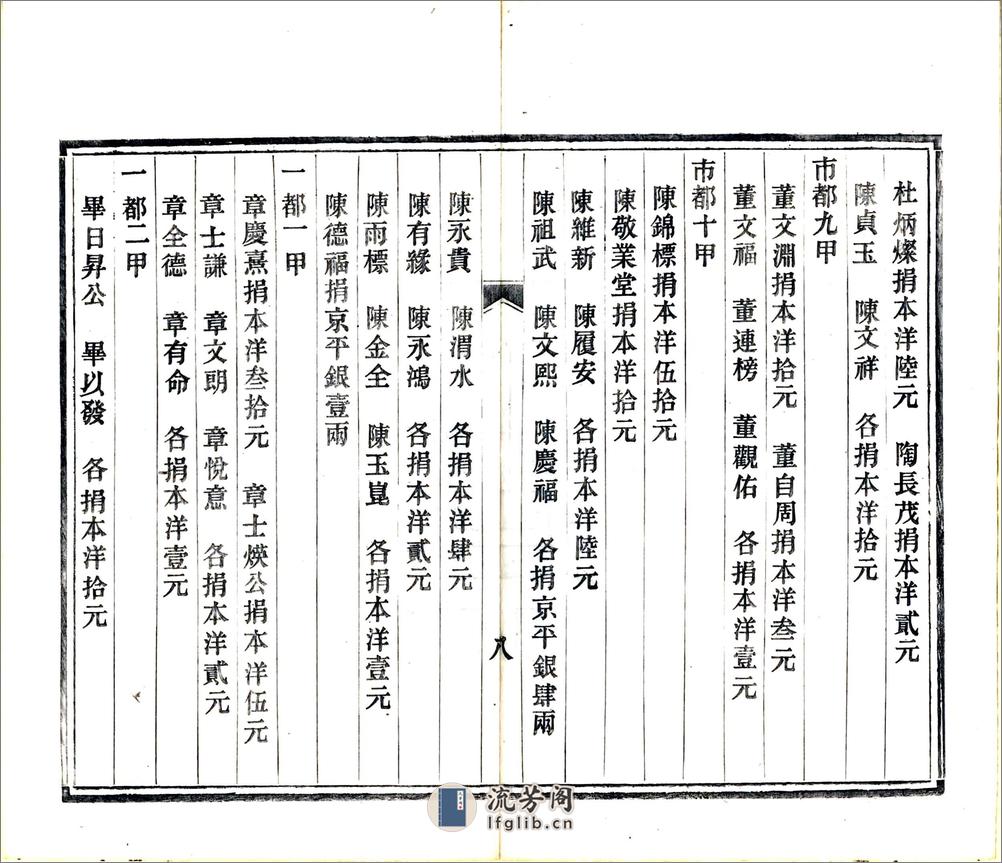 杜炳燦捐本洋陸元　陶長茂捐本洋貳元
陳貞玉　陳文祥　各捐本洋拾元
市都九甲
董文淵捐本洋拾元　董自周捐本洋叁元
董文福　董連榜　董觀佑　各捐本洋壹元
市都十甲
陳錦標捐本洋伍拾元
陳敬業堂捐本洋拾元
陳維新　陳履安　各捐本洋陸元
陳祖武　陳文熙　陳慶福　各捐京平銀肆兩
八
陳永貴　陳渭水　各捐本洋肆元
陳有緣　陳永鴻　各捐本洋貳元
陳雨標　陳金全　陳玉崑　各捐本洋壹元
陳德福捐京平銀壹兩
一都一甲
章慶熹捐本洋叁拾元　章士煐公捐本洋伍元
章士謙　章文朗　章悅意　各捐本洋貳元
章全德　章有命　各捐本洋壹元
一都二甲
畢日昇公　畢以發　各捐本洋拾元
流芳阁
lfglib.cn